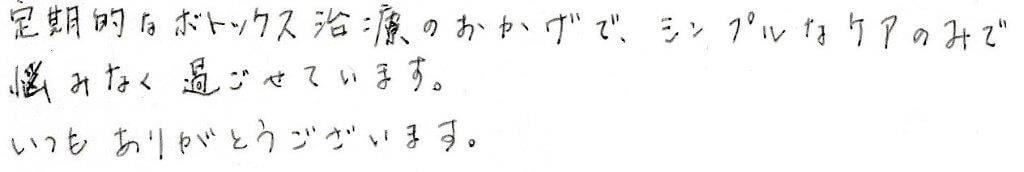 定期的なボトックス治療のおかげで、シンプルなケアのみで
悩みなく過ごせています。
いつもありがとうございます。